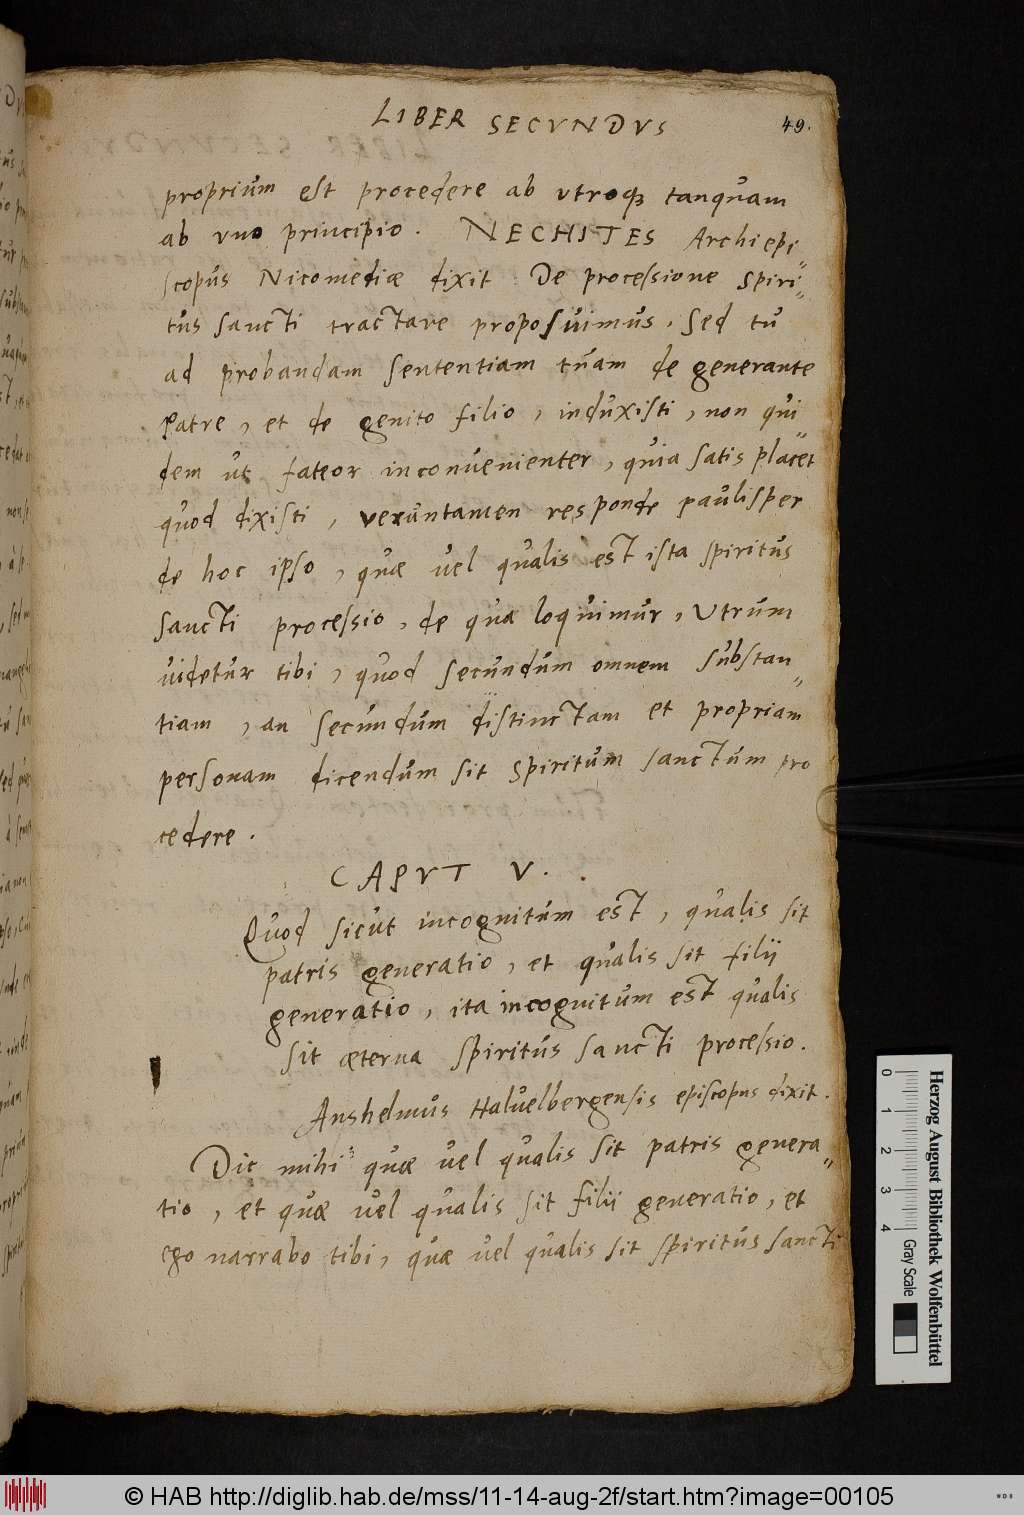 LIBER SECVNDVS 49.
proprium est procedere ab vtroq₃ tanquam
ab vno principio. NECHITES Archiepi〃
scopus Nicomediæ dixit : De processione Spiri〃
tus Sancti tractare proposuimus. Sed tu
ad probandam Sententiam tuam de generante
Patre, et de genito filio, induxisti, non qui〃
dem ut fateor inconuenienter, quia satis placet
quod dixisti, veruntamen responde paulisper
de hoc ipso, quæ uel qualis est ista spiritus
Sancti processio, de qua loquimur, Utrum
uidetur tibi, quod secundum omnem substan〃
tiam, an secundum distinctam et propriam
personam dicendum sit Spiritum sanctum pro
cedere.
CAPVT V.
Quod sicut incognitum est, qualis sit
patris generatio, et qualis sit filij
generatio, ita incognitum est qualis
sit æterna spiritus sancti processio.
Anshelmus Haluelbergensis episcopus dixit.
Dic mihi quæ uel qualis sit patris genera〃
tio, et quæ uel qualis sit filij generatio, et
ego narrabo tibi, quæ uel qualis sit spiritus sancti
0 1 2 3 4
Herzog August Bibliothek Wolfenbüttel
Gray Scale
© HAB http://diglib.hab.de/mss/11-14-aug-2f/start.htm?image=00105